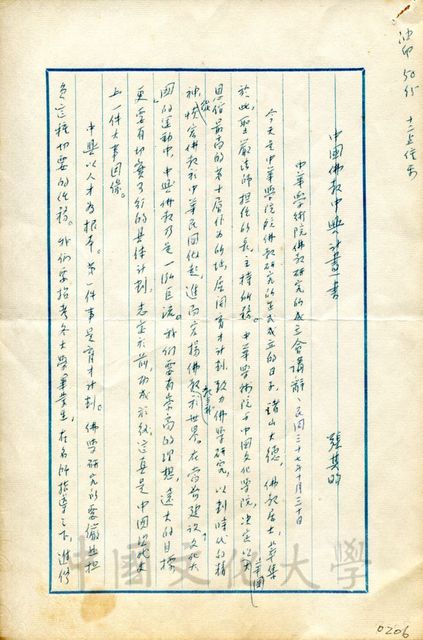 油印50份
十二上信安
中國佛教中興計畫書
中華學術院佛教研究所成立會講辭、民國五十七年十月三十日
張其昀
今天是中華學術院佛教研究所正式成立的日子，諸山大德，佛教居士，華集
於此，聖嚴法師担任所長，主持所務。中華學術院與中國文化學院，決定以大
恩館最高的第十層作為所址，展開育才計劃，致力佛學研究，以新時代的精
神，恢宏佛教於中華民國做起，進而宏揚佛教於世界。在當前建設文化大
國的運動中，中興佛教乃是一派巨流。我們要有崇高的理想，遠大的目標，
更要有切實可行的具體計劃。志立於前，功成於後，這真是中國歷史
上一件大事因緣。
中興以人才為根本。第一件事是育才計劃。佛學研究所要儘先担
負這種切要的任務。我們要招考各大學畢業生，在名師指導之下，進修
中國文化大學
0206